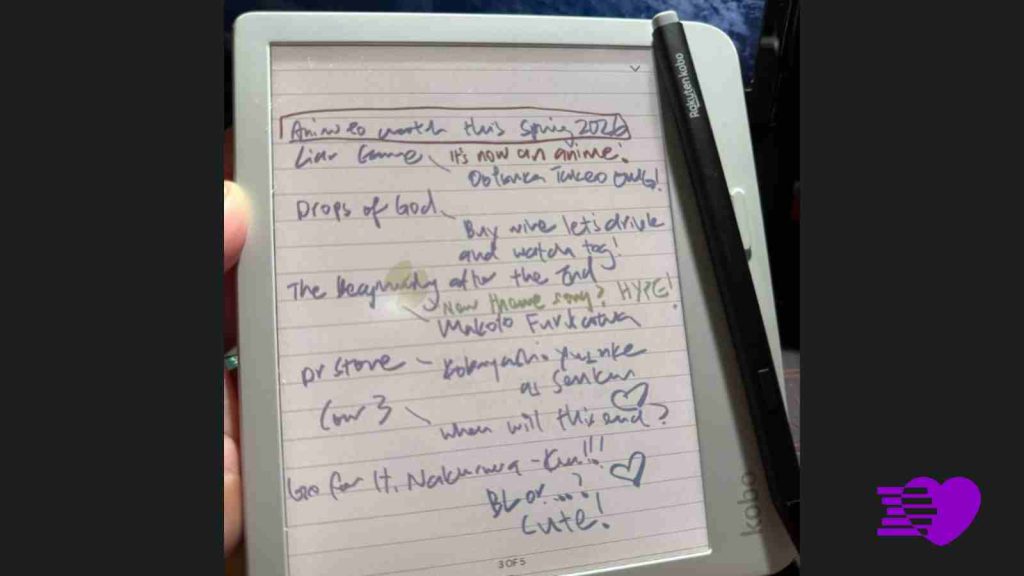 Anime to watch this Spring 2026
Liar Game
It's now an anime!
Takeo OMG!
Drops of God
Buy wine let's drink
and watch tog!
The Beginning after the End
New theme song? HYPE!
Makoto Furukawa
Dr Stone - Kobayashi Yusuke
as Senkuu
Cour 3
when will this end?
Go for It, Nakamura-Kun!!!
BL or...?
Cute!
3 OF 5
Rakuten kobo
kobo